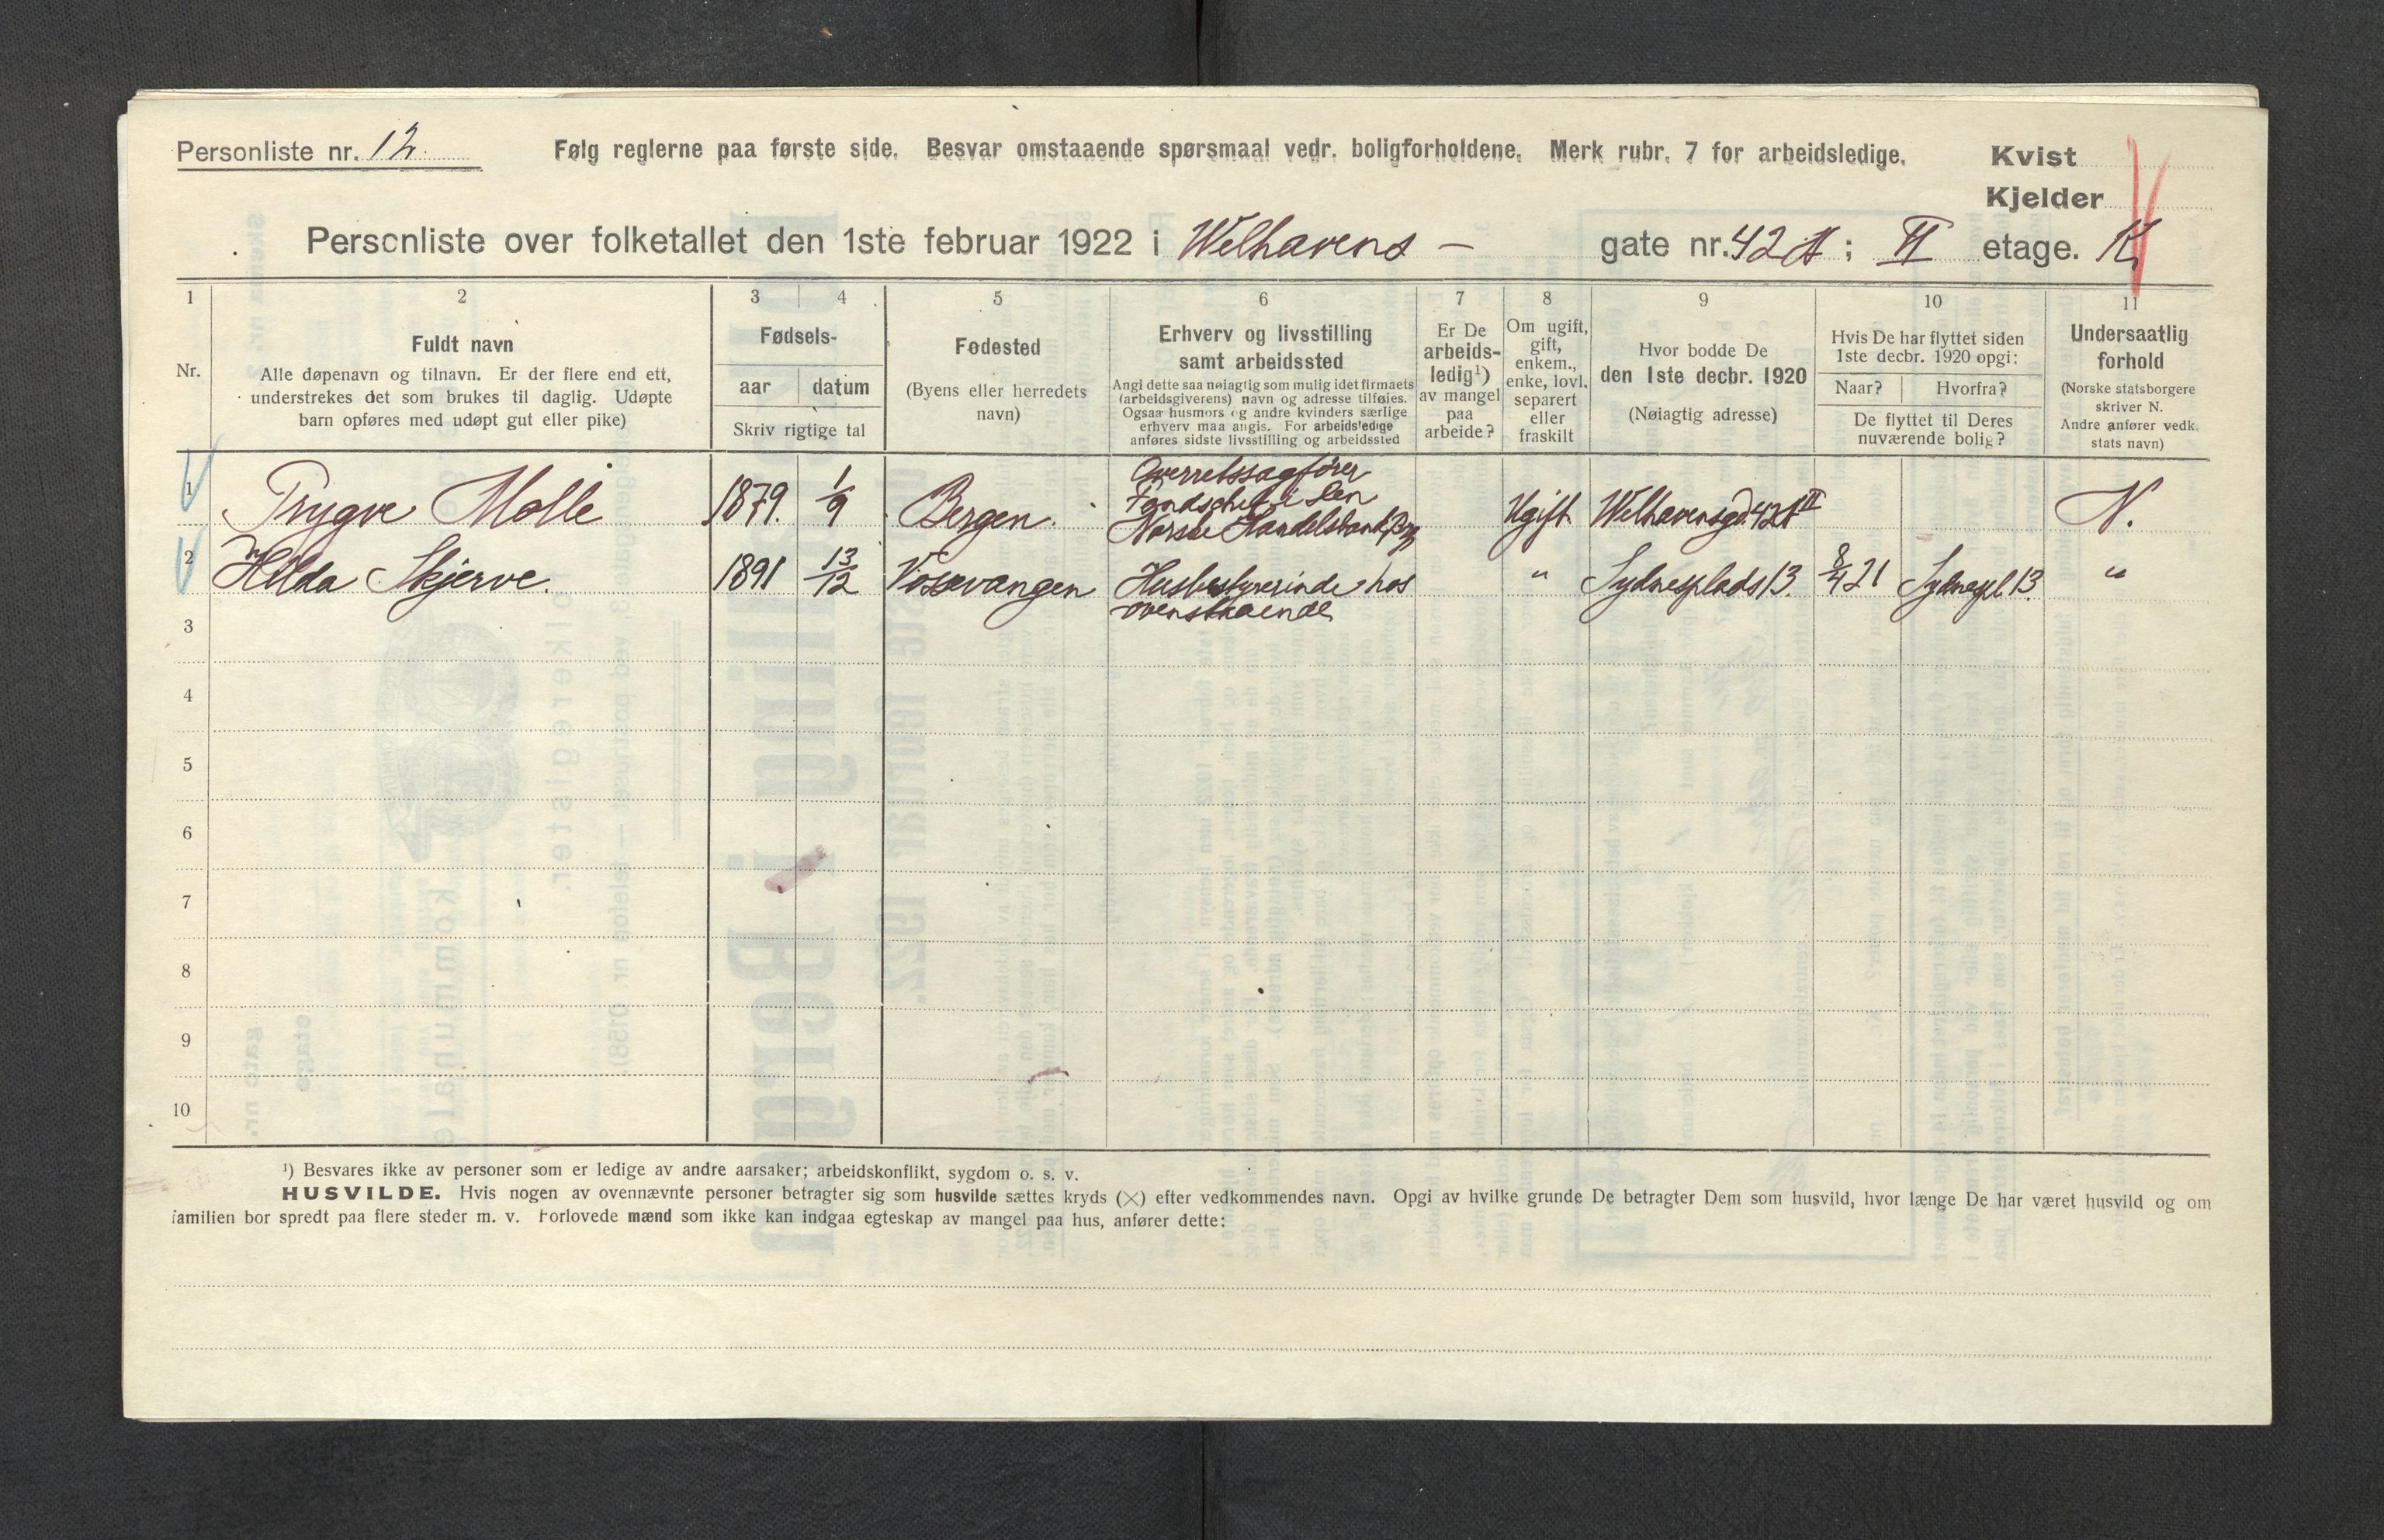 Personliste nr. 12.
Følg reglerne paa første side. Besvar omstaaende spørsmaal vedr. boligforholdene. Merk rubr. 7 for arbeidsledige.
Kvist
Kjelder
Personliste over folketallet den 1ste februar 1922 i Welhavens – gate nr. 42 A ; II etage. K.
1 2 3 4 5 6 7 8 9 10 11
Nr.
Fuldt navn
Alle døpenavn og tilnavn. Er der flere end ett,
understrekes det som brukes til daglig. Udøpte
barn opføres med udøpt gut eller pike)
Fødsels-
aar datum
Skriv rigtige tal
Fødested
(Byens eller herredets
navn)
Erhverv og livsstilling
samt arbeidssted
Angi dette saa nøiagtig som mulig idet firmaets
(arbeidsgiverens) navn og adresse tilføies.
Ogsaa husmors og andre kvinders særlige
erhverv maa angis. For arbeidsledige
anføres sidste livsstilling og arbeidssted
Er De
arbeids-
ledig¹)
av mangel
paa
arbeide?
Om ugift,
gift,
enkem.,
enke, lovl.
separert
eller
fraskilt
Hvor bodde De
den 1ste decbr. 1920
(Nøiagtig adresse)
Hvis De har flyttet siden
1ste decbr. 1920 opgi:
Naar? Hvorfra?
De flyttet til Deres
nuværende bolig?
Undersaatlig
forhold
(Norske statsborgere
skriver N.
Andre anfører vedk.
stats navn)
1 Trygve Molle 1879. 1/9 Bergen. Overretssagfører
Fondschef i Den
Norske Handelsbank, Brg Ugift Welhavensgd. 42 A II N.
2 Hilda Skjerve. 1891 13/12 Vossevangen Husbestyrerinde hos
ovenstaaende " Sydnesplads 13. 8/4 21 Sydnespl. 13. "
3
4
5
6
7
8
9
10
¹) Besvares ikke av personer som er ledige av andre aarsaker; arbeidskonflikt, sygdom o. s. v.
HUSVILDE. Hvis nogen av ovennævnte personer betragter sig som husvilde sættes kryds (X) efter vedkommendes navn. Opgi av hvilke grunde De betragter Dem som husvild, hvor længe De har været husvild og om
familien bor spredt paa flere steder m. v. Forlovede mænd som ikke kan indgaa egteskap av mangel paa hus, anfører dette: